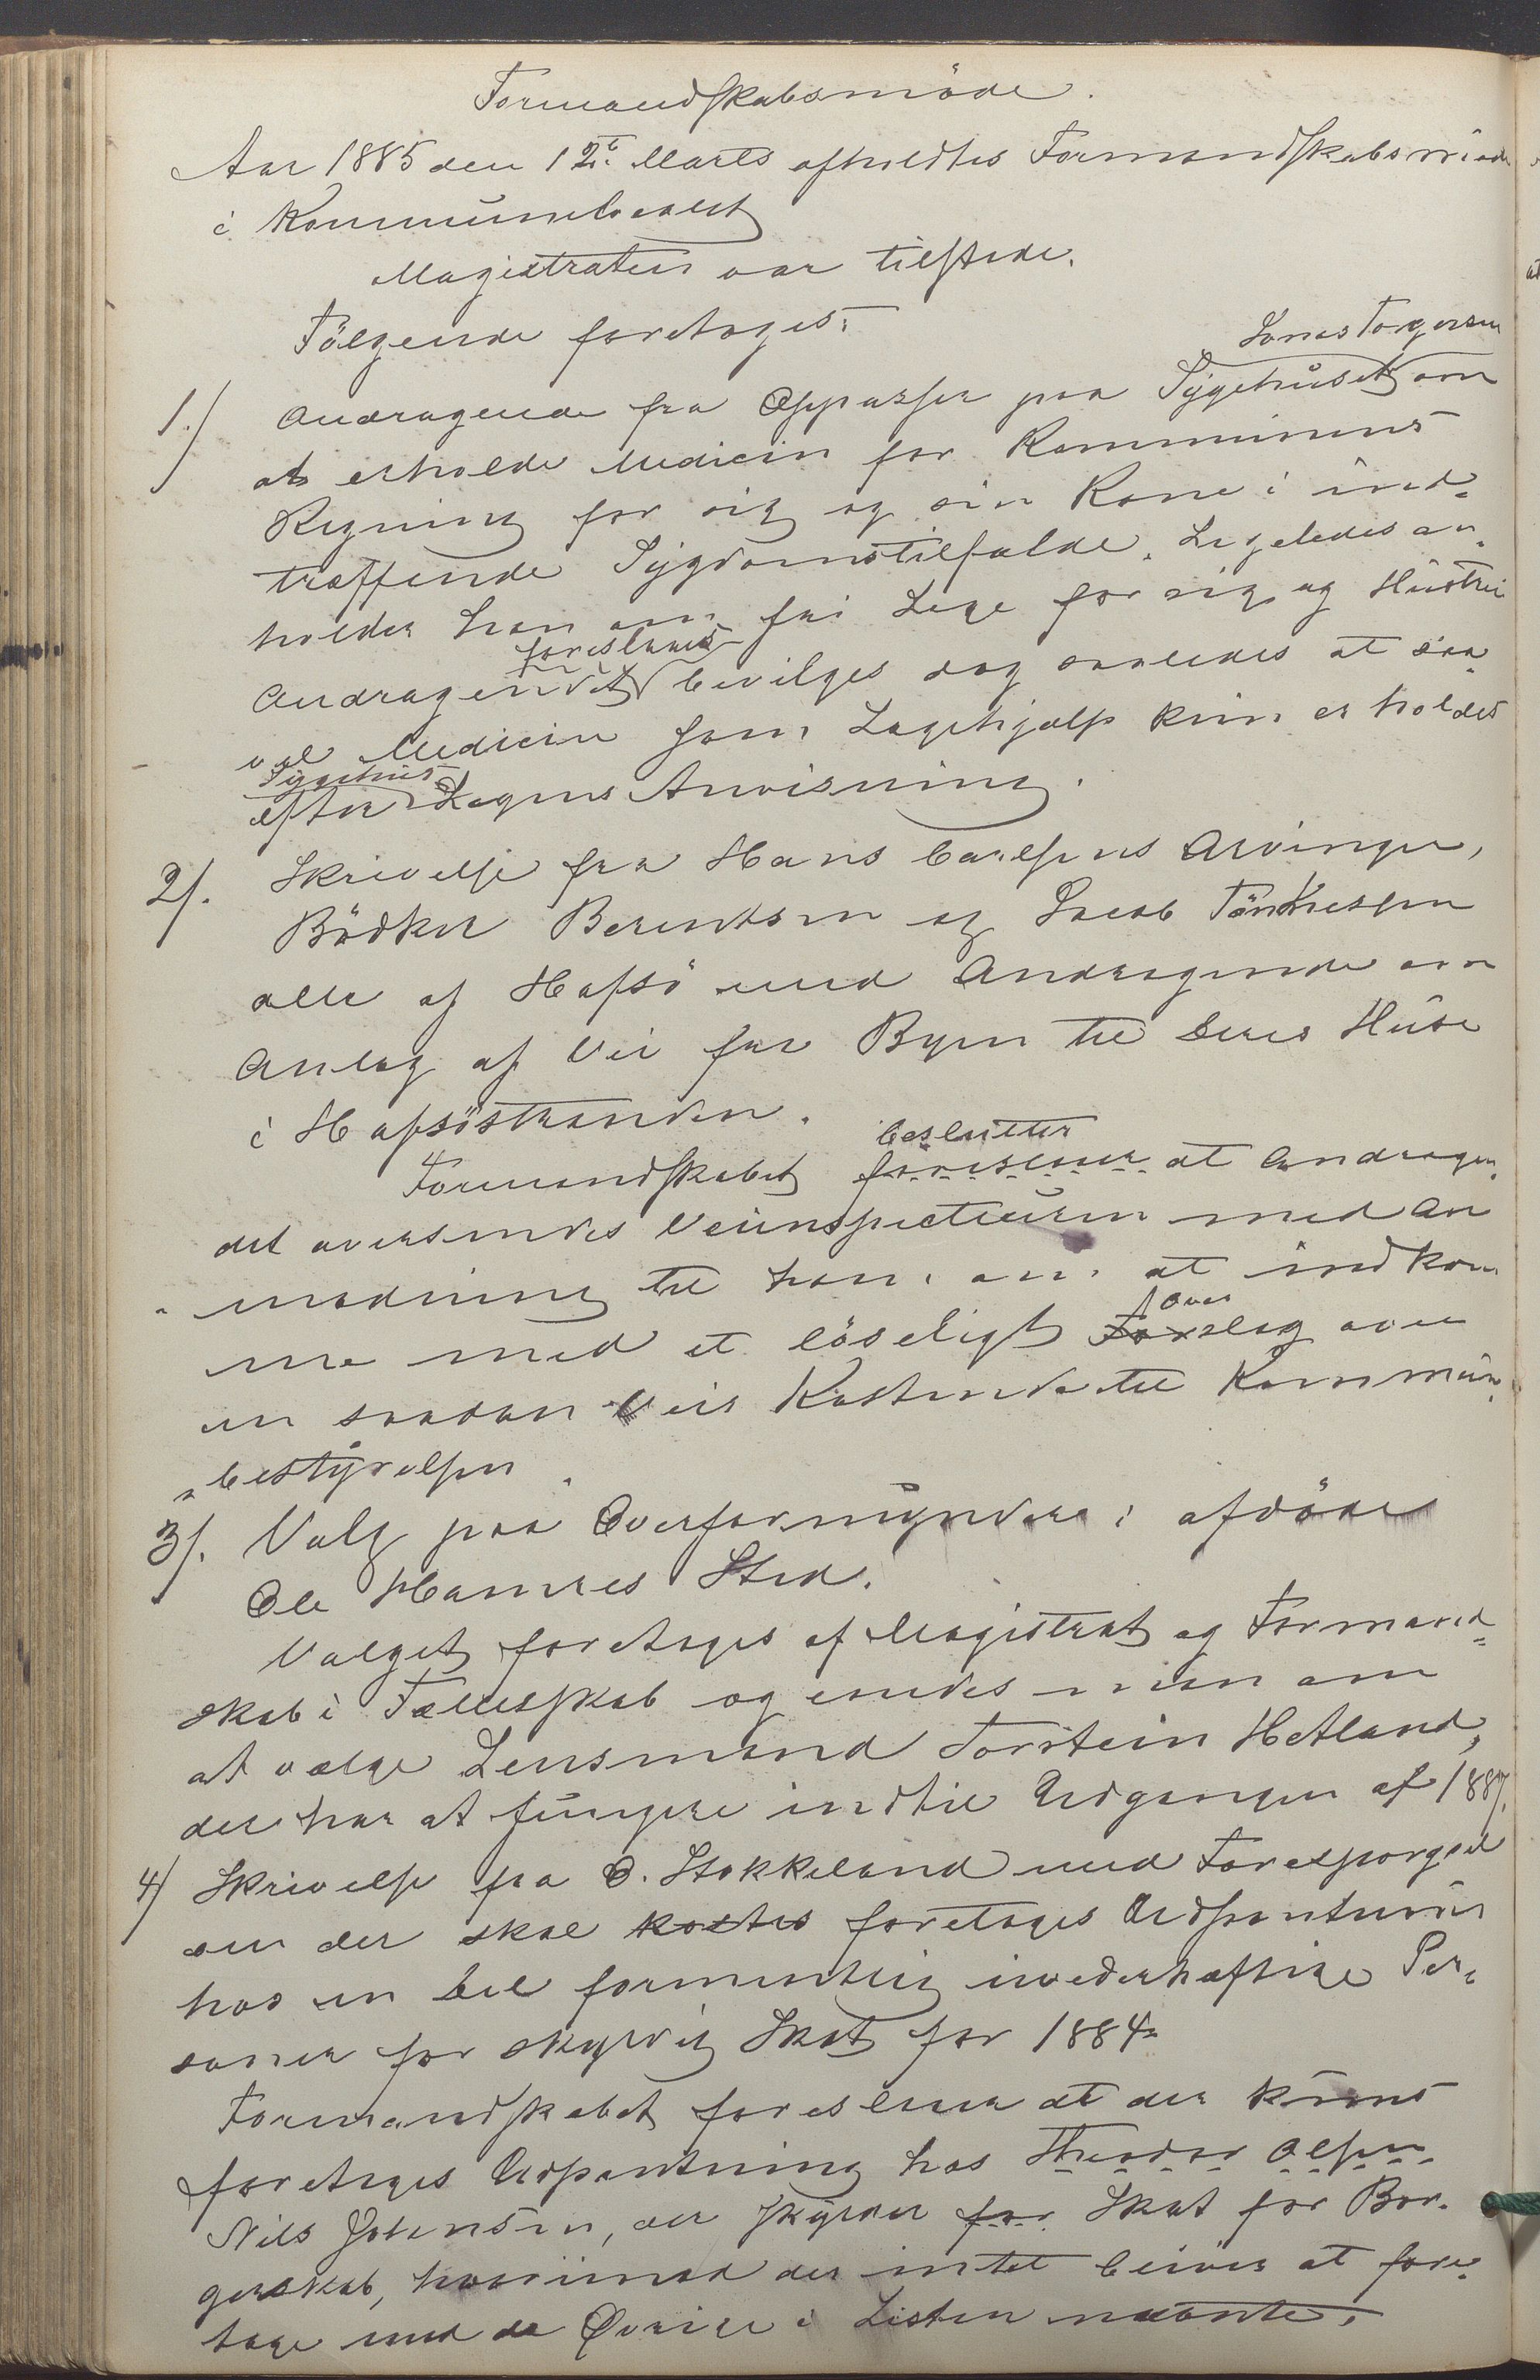 Formandskabsmöde.
Aar 1885 den 12te Marts afholdtes Formandskabsmöde
i Kommunelocalet
Magistraten var tilstede.
Fölgende foretoges:
Jonas Torgersen
1./ Andragende fra Opparser paa Sygehuset om
at erholde Medicin for Kommunens
Regning for sig og sin Kone i ind-
træffende Sygdomstilfælde. Ligeledes an-
holder han om fri Læge for sig og Hustru
foreslaaes
Andragendet bevilges dog saaledes at saa-
vel Medicin som Lægehjælp kun erholdes
Sygehus
efter Lægens Anvisning.
2/. Skrivelse fra Hans Carlsens Arvinger,
Bödker Berentsen og Jacob Tönnessen
alle af Hafsö med Andragende om
Anlæg af Vei fra Byen til deres Huse
i Hafsöstranden.
beslutter
Formandskabet foreslaar at Andragen-
det oversendes Veiinspecteuren med An-
modning til ham om at indkom-
Over
me med et löseligt Forslag over
en saadan Veis Kostende til Kommune-
bestyrelsen.
3/. Valg paa Overformynder i afdöde
Ole Hamres Sted.
Valget foretoges af Magistrat og Formand-
skab i Fælleskab og enedes man om
at vælge Lensmand Torstein Hetland,
der har at fungere indtil Udgangen af 1887.
4/ Skrivelse fra O. Stokkeland med Forespørgsel
om der skal kostes foretages Udpantning
hos en del formentlig uvederhæftige Per-
soner for skyldig Skat for 1884.
Formandskabet foreslaar at der kuns
foretages Udpantning hos Theodor Olsen
Nils Johnsen, der skylder for Skat for Bor-
gerskab, hvorimod der intet bliver at fore-
tage med de Øvrige i Listen nævnte.